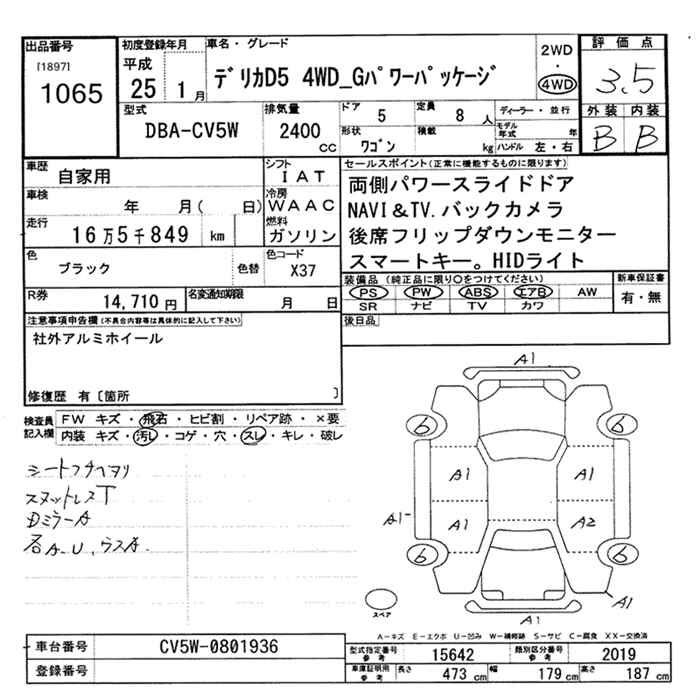 出品番号 初度登録年月 車名・グレード 2WD 評価点
[1897] 平成 ・
1065 25 1月 デリカD5 4WD_Gパワーパッケージ 4WD 3.5
型式 排気量 ドア 5 定員 8 人 ディーラー・並行 外装 内装
DBA-CV5W 2400 cc 形状 ワゴン 積載 kg モデル年式 年 B B
ハンドル 左・右
車歴 自家用 シフト IAT セールスポイント(正常に機能するものに限ります)
車検 年 月( 日) 冷房 WAAC 両側パワースライドドア
走行 16万5千849 km 燃料 ガソリン NAVI&TV.バックカメラ
色 ブラック 色替 色コード X37 後席フリップダウンモニター
スマートキー。HIDライト
R券 14,710円 名変通知期限 月 日 装備品(純正品に限り○をつけてください) 新車保証書
PS PW ABS エアB AW 有・無
SR ナビ TV カワ
注意事項申告欄(不具合内容等は具体的に記入して下さい) 後日品
社外アルミホイール
修復歴 有〔箇所 〕
検査員記入欄 FW キズ・飛石・ヒビ割・リペア跡・×要
内装 キズ・汚レ・コゲ・穴・スレ・キレ・破レ
シート
DミラーA
A-U
A1
6 6
A1 A1
A1 A1 A2
6 6
A1
A1
スペア
A-キズ E-エクボ U-凹み W-補修跡 S-サビ C-腐食 XX-交換済
車台番号 CV5W-0801936 型式指定番号 参考 15642 類別区分番号 参考 2019
登録番号 車庫証明用 参考 長さ 473 cm 幅 179 cm 高さ 187 cm